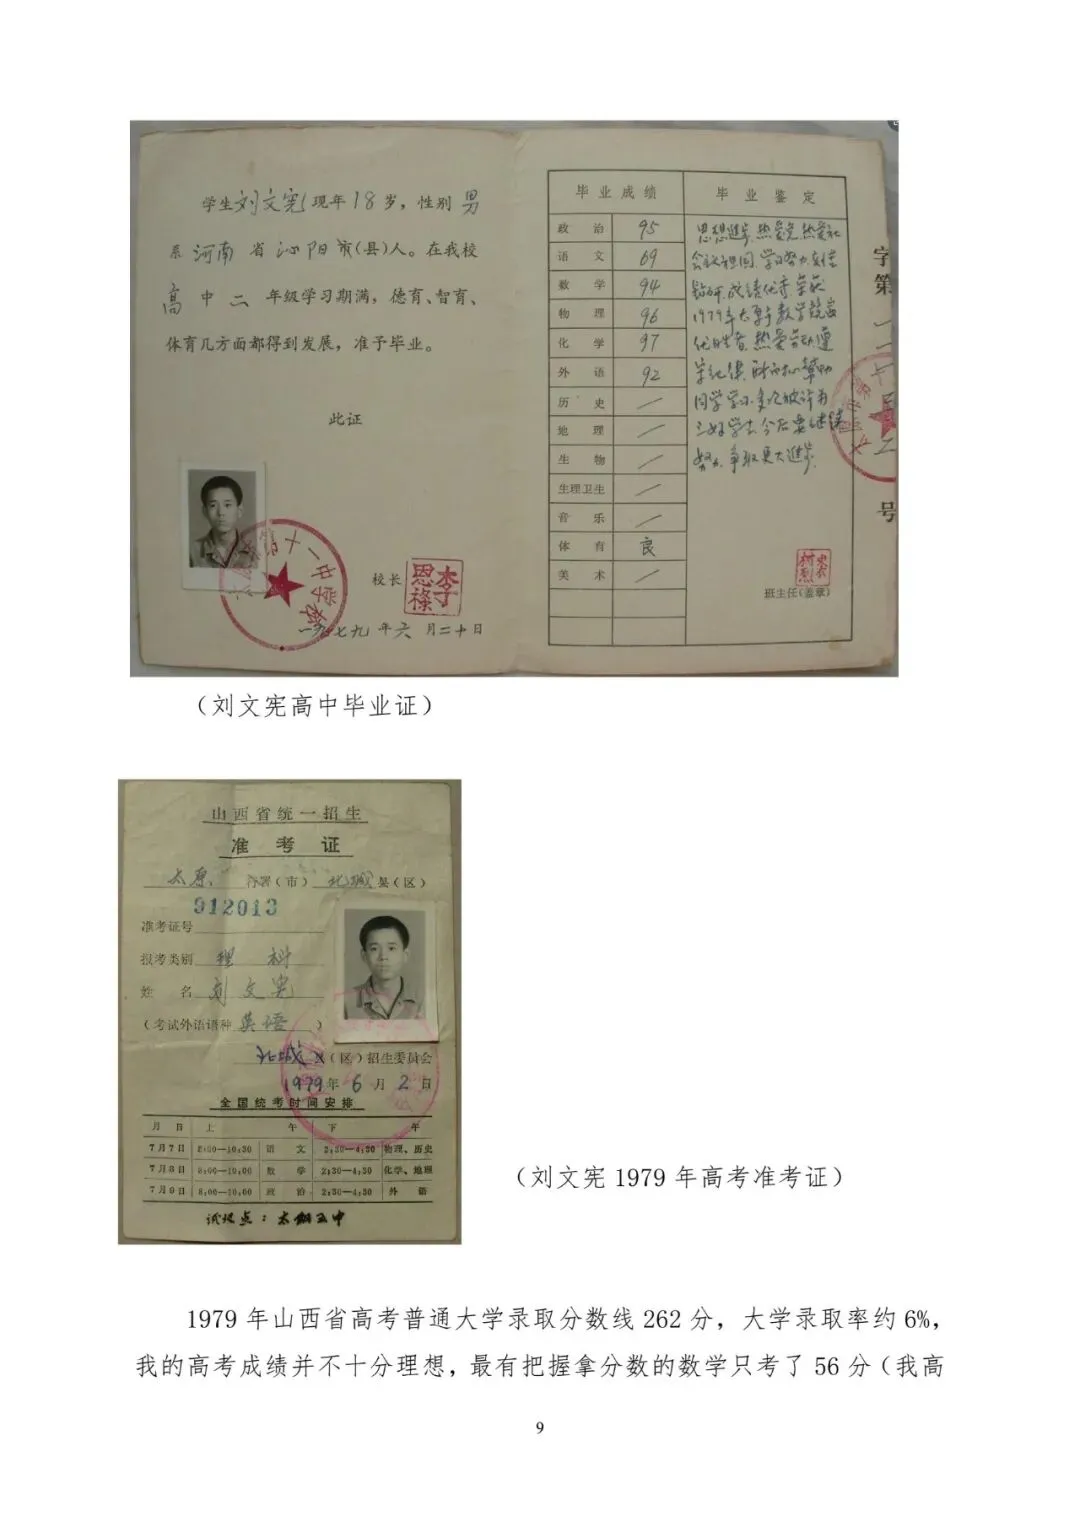 学生刘文宪现年18岁，性别男
系河南省沁阳市(县)人。在我校
高中二年级学习期满，德育、智育、
体育几方面都得到发展，准予毕业。
此证
十一中学校
校长
李恩禄
一九七九年六月二十日
毕业成绩 毕业鉴定
政治 95
语文 69
数学 94
物理 96
化学 97
外语 92
历史 /
地理 /
生物 /
生理卫生 /
音乐 /
体育 良
美术 /
思想进步，热爱党，热爱社
会主义祖国，学习努力，刻苦
钻研，成绩优秀，荣获
1979年太原市数学竞赛
优胜者，热爱劳动，遵
守纪律，耐心帮助
同学学习，多次被评为
三好学生，今后要继续
努力，争取更大进步。
班主任(盖章)
字第
号
（刘文宪高中毕业证）
山西省统一招生
准考证
太原 行署(市) 北城 县(区)
912013
准考证号
报考类别 理科
姓名 刘文宪
(考试外语语种 英语 )
北城县(区)招生委员会
1979年6月2日
全国统考时间安排
月日 上午 下午
7月7日 8:00—10:30 语文 2:30—4:30 物理、历史
7月8日 8:00—10:00 数学 2:30—4:30 化学、地理
7月9日 8:00—10:00 政治 2:30—4:30 外语
试场点：太钢五中
（刘文宪1979年高考准考证）
1979年山西省高考普通大学录取分数线262分，大学录取率约6%，
我的高考成绩并不十分理想，最有把握拿分数的数学只考了56分（我高
9